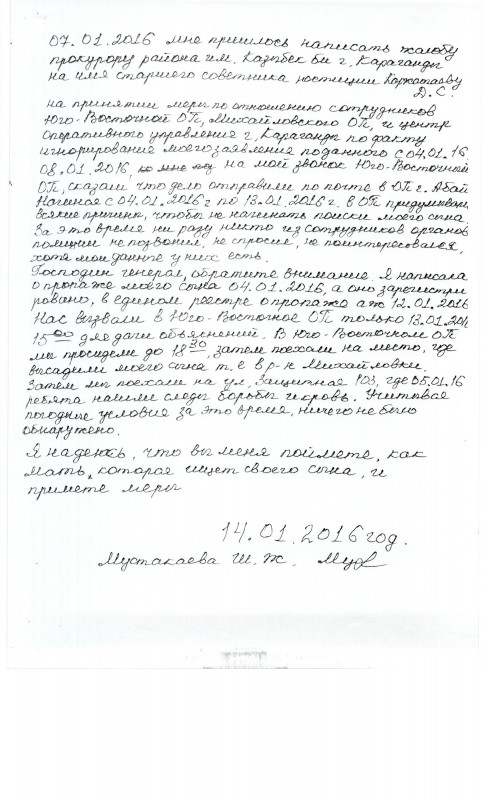 07.01.2016 мне пришлось написать жалобу
прокурору района им. Казыбек би г. Караганды
на имя старшего советника юстиции
Д.С.
на принятии мер по отношению сотрудников
Юго-Восточной ОП, Михайловского ОП, и центр
Оперативного управления г. Караганды по факту
игнорирование моего заявления поданного с 04.01.16
08.01.2016, на мой звонок Юго-Восточный
ОП, сказали что дело отправили по почте в ОП г. Абай
Начиная с 04.01.2016 г по 13.01.2016 г. в ОП придумывали
всякие причины, чтобы не начинать поиски моего сына.
За это время ни разу никто из сотрудников органов
полиции не позвонил, не спросил, не поинтересовался,
хотя мои данные у них есть.
Господин генерал, обратите внимание. Я написала
о пропаже моего сына 04.01.2016, а оно зарегистри
ровано, в едином реестре о пропаже аж 12.01.2016
Нас вызвали в Юго-Восточное ОП только 13.01.2016
15 00 для дачи объяснений. В Юго-Восточном ОП
мы просидели до 18 30, затем поехали на место, где
высадили моего сына т.е в р-н Михайловки.
Затем мы поехали на ул. Защитная 103, где 05.01.16
ребята нашли следы борьбы и кровь. Учитывая
погодные условия за это время, ничего не было
обнаружено.
Я надеюсь, что вы меня поймете, как
мать, которая ищет своего сына, и
примете меры
14.01.2016 год.
Мустакаева Ш.Ж.